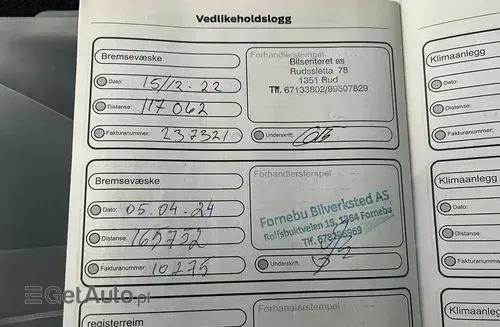 Vedlikeholdslogg
Bremsevæske
Dato: 15/12.22
Distanse: 117062
Fakturanummer: 237321
Forhandlerstempel
Bilsenteret as
Rudssletta 78
1351 Rud
Tlf. 67133802/99507829
Underskrift:
Klimaanlegg
Dato:
Distanse:
Fakturanummer:
Bremsevæske
Dato: 05.04.24
Distanse: 165732
Fakturanummer: 10275
Forhandlerstempel
Fornebu Bilverksted AS
Rolfsbuktveien 15, 1364 Fornebu
Underskrift:
Klimaanlegg
Dato:
Distanse:
Fakturanummer:
registerreim
Forhandlerstempel
GetAuto.pl